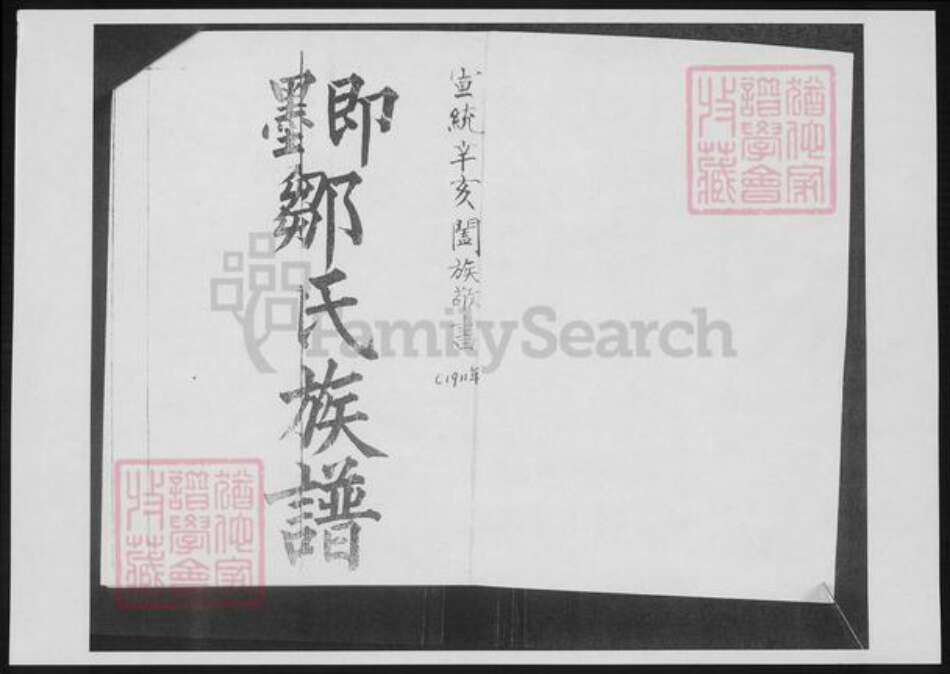 宣統辛亥闔族敬書
(1911年
即墨
鄒氏族譜
猶他家
譜學會
收藏
FamilySearch
猶他家
譜學會
收藏